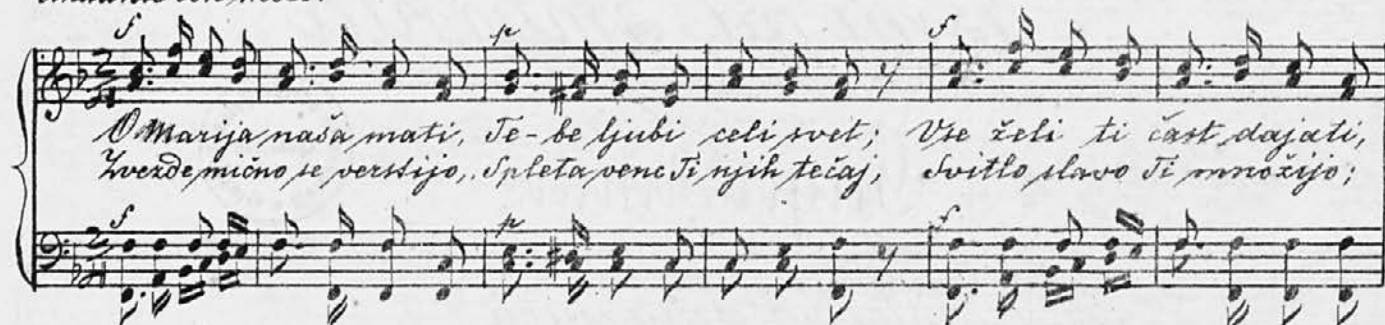 Andante con moto.
f p f
O Marija naša mati, Te-be ljubi celi svet; Vse želi ti čast dajati,
Zvezde mično se verstijo, Spleta venc Ti njih tečaj, Svitlo slavo Ti množijo;
f p f